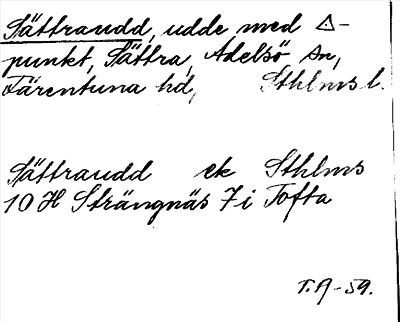 Sättraudd, udde med △-
punkt, Sättra, Adelsö sn,
Färentuna hd, Sthlms l.
Sättraudd ek Sthlms
10 H Strängnäs 7 i Tofta
T.A-59.